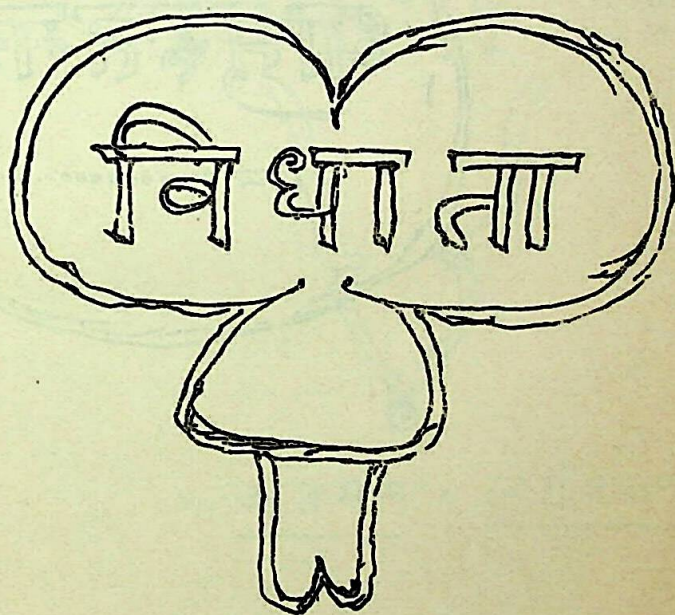 विधाता